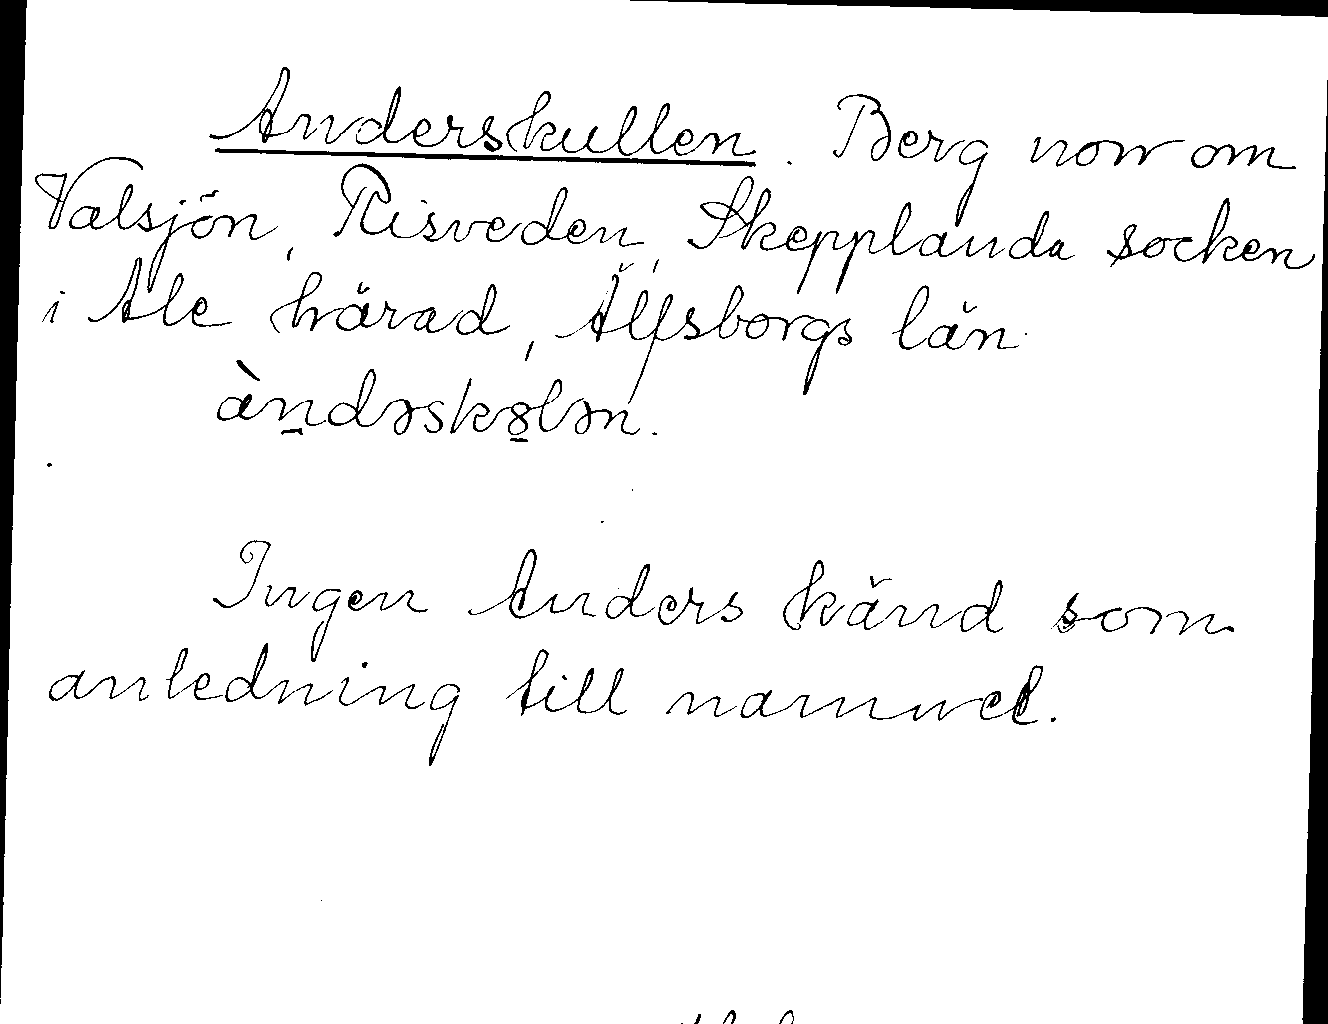 Anderskullen. Berg norr om
Valsjön, Risveden, Skepplanda socken
i Ale härad, Älfsborgs län
àn̲dəsk8̲lən.
Ingen Anders känd som
anledning till namnet.